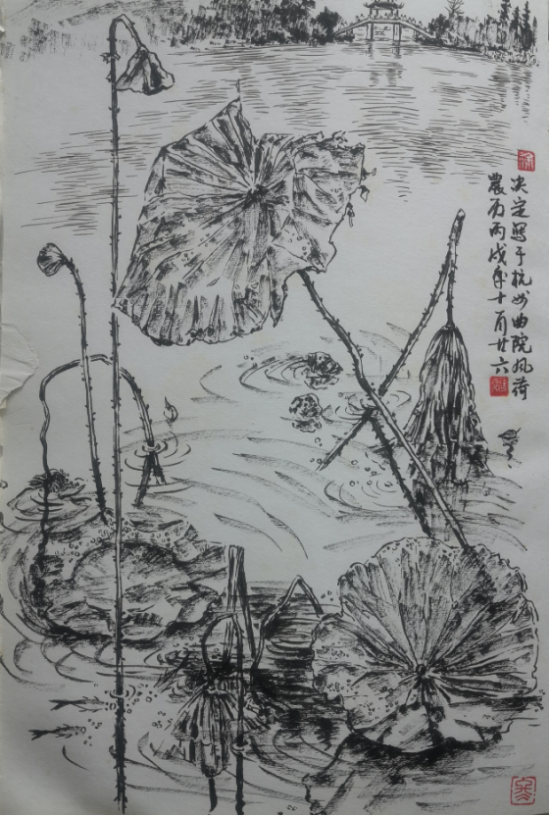 决定写于杭州曲院风荷
農历丙戌年十月廿六